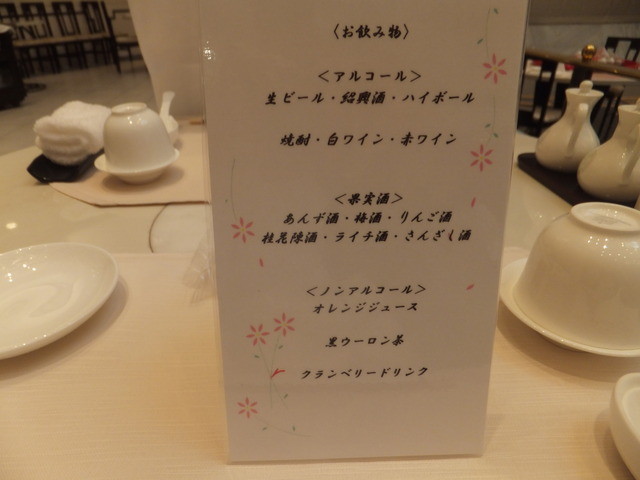 〈お飲み物〉
＜アルコール＞
生ビール・紹興酒・ハイボール
焼酎・白ワイン・赤ワイン
＜果実酒＞
あんず酒・梅酒・りんご酒
桂花陳酒・ライチ酒・さんざし酒
＜ノンアルコール＞
オレンジジュース
黒ウーロン茶
クランベリードリンク